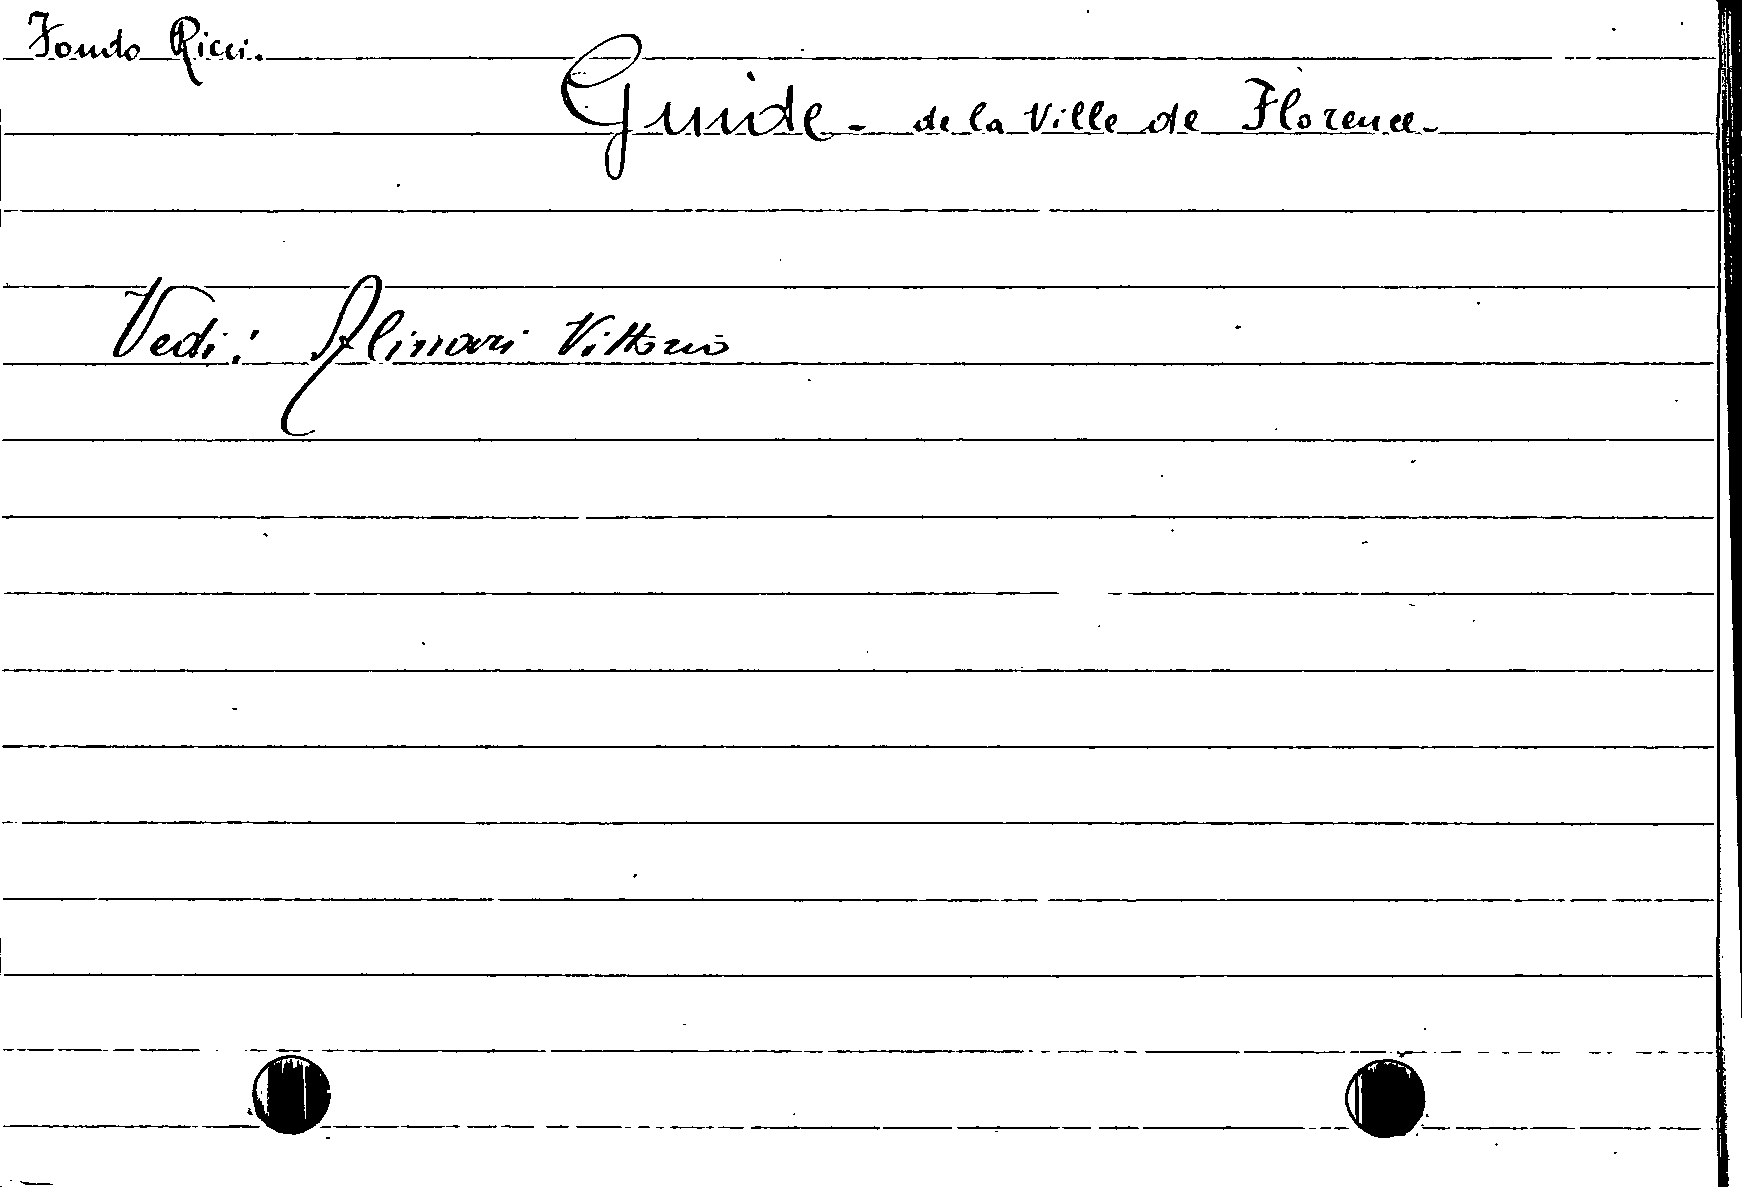 Fondo Ricci.
Guide - de la Ville de Florence -
Vedi: Alinari Vittorio